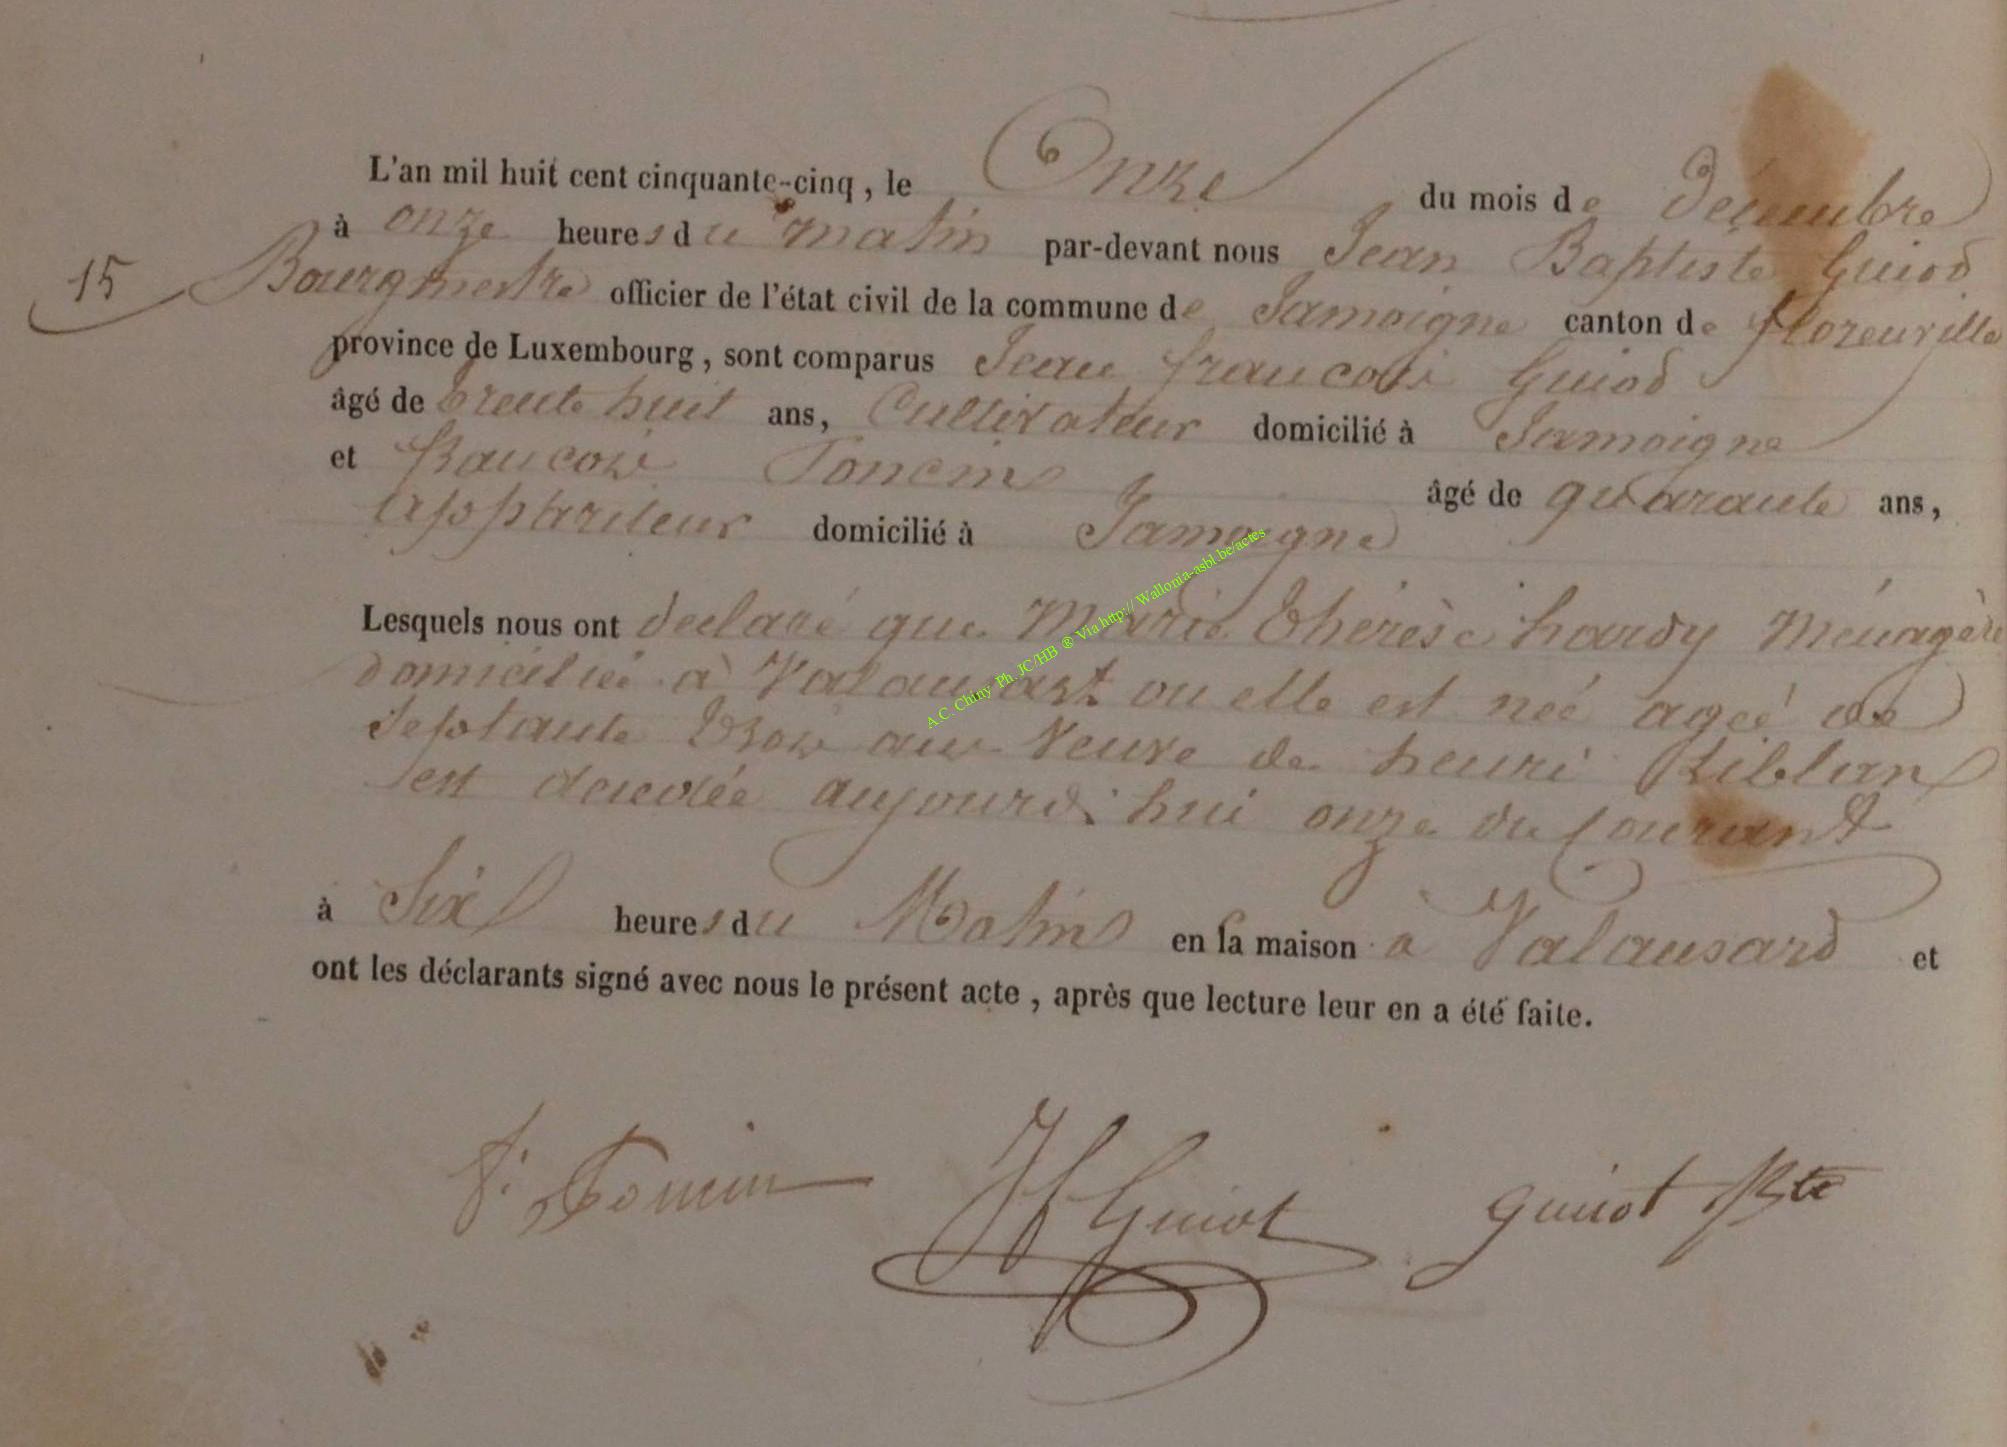 L'an mil huit cent cinquante-cinq, le Onze du mois de décembre
à onze heures du matin par-devant nous Jean Baptiste Guiod
15 Bourgmestre officier de l'état civil de la commune de Jamoigne canton de florenville
province de Luxembourg, sont comparus Jean francois Guiod
âgé de trente huit ans, Cultivateur domicilié à Jamoigne
et francois Toncin âgé de quarante ans,
appariteur domicilié à Jamoigne
Lesquels nous ont declaré que Marie thérèse hardy Ménagère
domiciliée à Valansart ou elle est née ageé de
septante trois ans Veuve de henri
est décédée aujourd'hui onze du Courant
à Six heures du Matin en sa maison a Valansard et
ont les déclarants signé avec nous le présent acte, après que lecture leur en a été faite.
f. Toncin JfGuiot guiot Bte
A.C. Chiny Ph. JC/HB ® Via http:// Wallonia-asbl.be/actes